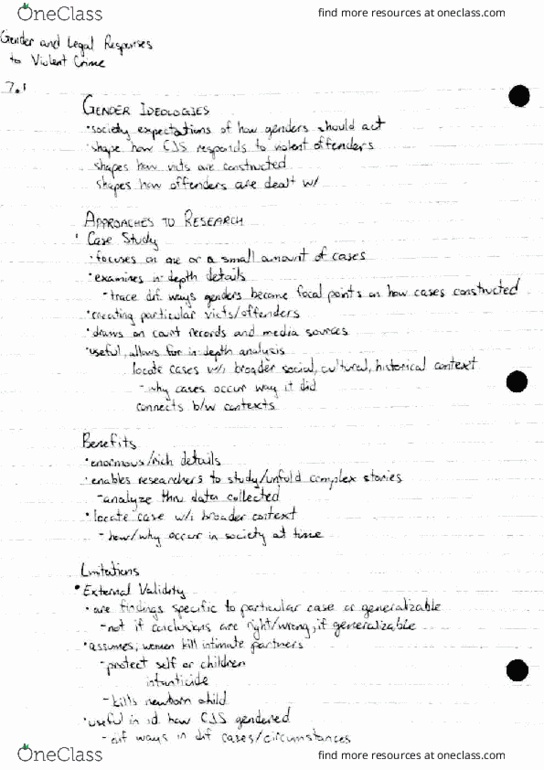 OneClass
find more resources at oneclass.com
Gender and Legal Responses
to Violent Crime
7.1
GENDER IDEOLOGIES
• society expectations of how genders should act
• shape how CJS responds to violent offenders
shapes how victs are constructed
shapes how offenders are dealt w/
APPROACHES TO RESEARCH
• Case Study
• focuses on one or a small amount of cases
• examines in-depth details
- trace dif. ways genders become focal points on how cases constructed
• creating particular victs/offenders
• draws on court records and media sources
• useful, allows for in-depth analysis
locate cases w/i broader social, cultural, historical context
- why cases occur way it did
connects b/w contexts
Benefits
• enormous/rich details
• enables researchers to study/unfold complex stories
- analyze thru data collected
• locate case w/i broader context
- how/why occur in society at time
Limitations
• External Validity
• are findings specific to particular case or generalizable
- not if conclusions are right/wrong, if generalizable
• assumes; women kill intimate partners
- protect self or children
infanticide
- kills newborn child
• useful in id. how CJS gendered
- dif ways in dif cases/circumstances
OneClass
find more resources at oneclass.com